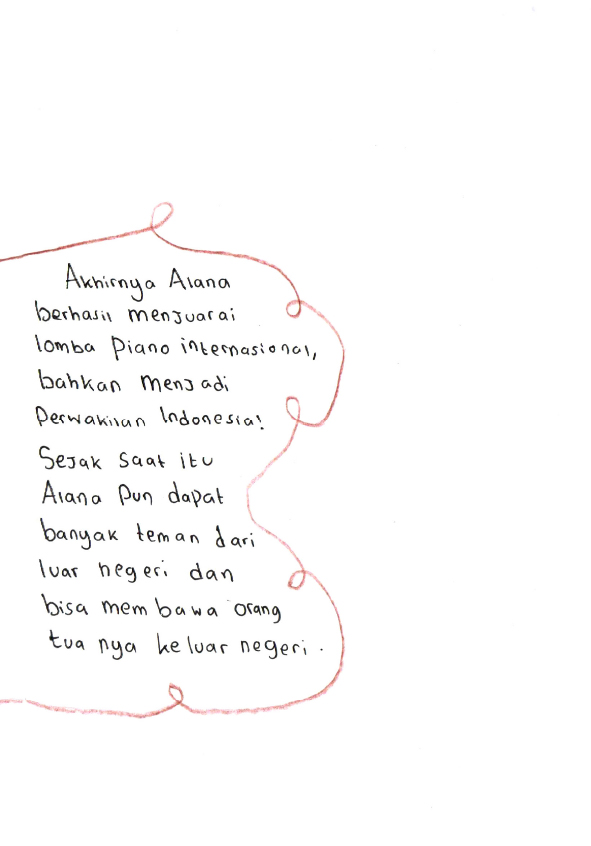 Akhirnya Alana
berhasil menjuarai
lomba piano internasional,
bahkan menjadi
perwakilan Indonesia!
Sejak saat itu
Alana pun dapat
banyak teman dari
luar negeri dan
bisa mem bawa orang
tua nya ke luar negeri.